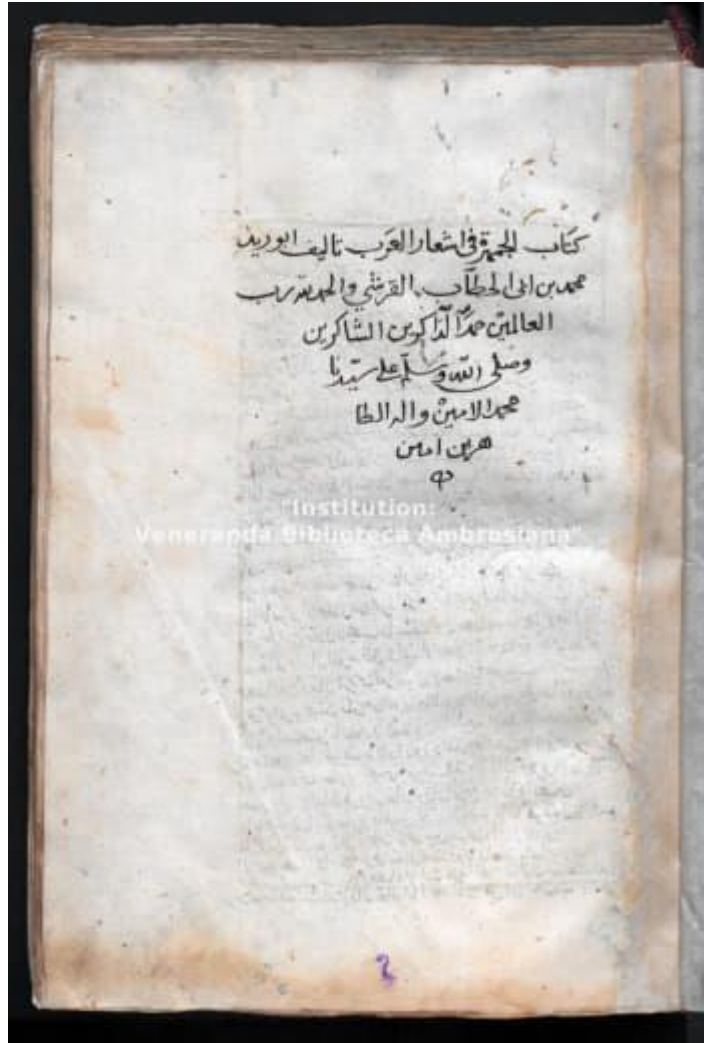 كتاب الجمهرة في اشعار العرب تاليف ابو زيد
محمد بن ابي الخطاب القرشي والحمد لله رب
العالمين حمد الذاكرين الشاكرين
وصلى الله وسلم على سيدنا
محمد الامين واله الطا
هرين امين
"Institution:
Veneranda Biblioteca Ambrosiana"